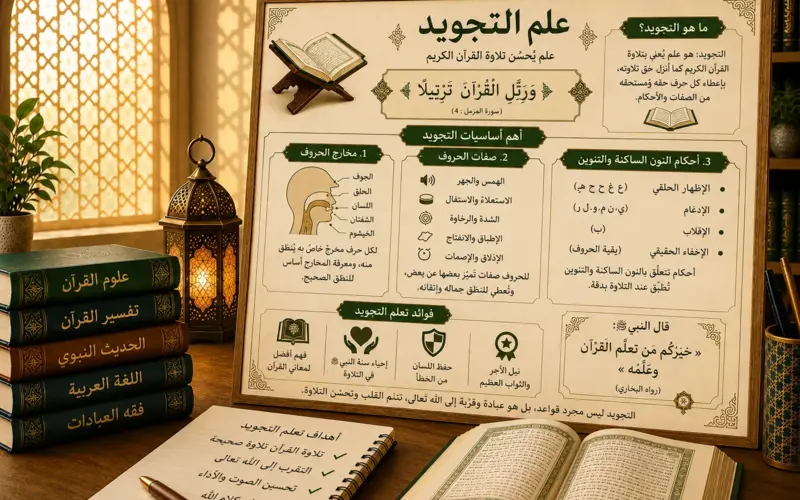 علم التجويد
علم يُحسّن تلاوة القرآن الكريم
وَرَتِّلِ الْقُرْآنَ تَرْتِيلًا
(سورة المزمل : 4)
ما هو التجويد؟
التجويد: هو علم يُعني بتلاوة
القرآن الكريم كما أنزل، حق تلاوته،
بإعطاء كل حرف حقه ومُستحقه
من الصفات والأحكام.
أهم أساسيات التجويد
1. مخارج الحروف
الجوف
الحلق
اللسان
الشفتان
الخيشوم
لكل حرف مخرجٌ خاصٌ به يُنطَق
منه، ومعرفة المخارج أساس
للنطق الصحيح.
2. صفات الحروف
الهمس والجهر
الاستعلاء والاستفال
الشدة والرخاوة
الإطباق والانفتاح
الإذلاق والإصمات
للحروف صفات تَميّز بعضها عن بعض،
وتُعطي للنطق جماله وإتقانه.
3. أحكام النون الساكنة والتنوين
الإظهار الحلقي
الإدغام
الإقلاب (ب)
الإخفاء الحقيقي (بقية الحروف)
أحكام تتعلّق بالنون الساكنة والتنوين
تُطبّق عند التلاوة بدقة.
فوائد تعلم التجويد
نيل الأجر
والثواب العظيم
حفظ اللسان
من الخطأ
إحياء سنة النبي ﷺ
في التلاوة
فهم أفضل
لمعاني القرآن
قال النبي ﷺ:
« خَيْرُكُم مَن تعلَّم الْقُرْآن
وعَلَّمَه »
(رواه البخاري)
التجويد ليس مجرد قواعد، بل هو عبادة وقُربة إلى الله تعالى، تنعّم القلب وتحسّن التلاوة.
علوم القرآن
تفسير القرآن
الحديث النبوي
اللغة العربية
فقه العبادات
أهداف تعلم التجويد
تلاوة القرآن تلاوة صحيحة ✓
التقرب إلى الله تعالى ✓
تحسين الصوت والأداء ✓
كلام الله